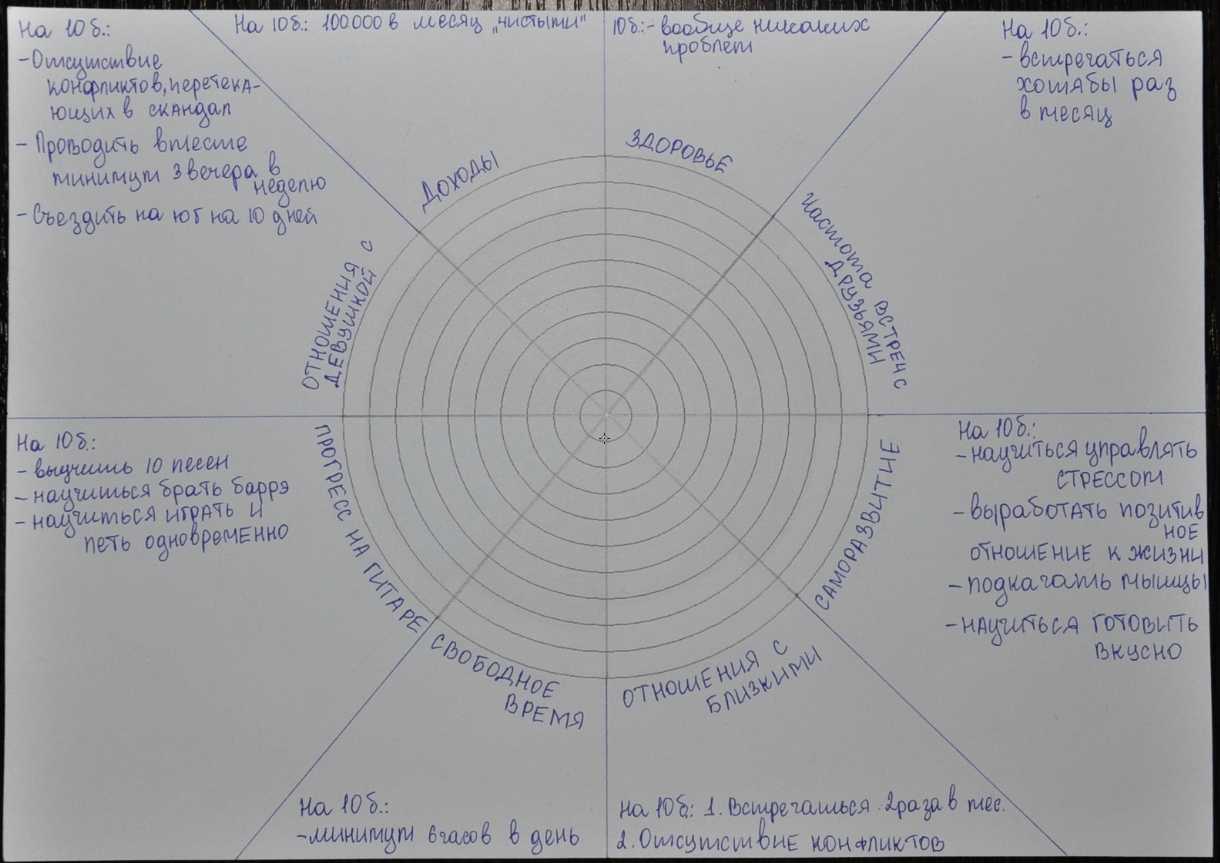 На 10б.:
-Отсутствие
конфликтов, перетека-
ющих в скандал
- Проводить вместе
минимум 3 вечера в
неделю
- Съездить на юг на 10 дней
ОТНОШЕНИЯ С
ДЕВУШКОЙ
На 10б.: 100000 в месяц „чистыми"
ДОХОДЫ
10б.:- вообще никаких
проблем
ЗДОРОВЬЕ
На 10б.:
- встречаться
хотябы раз
в месяц
Частота встреч с
друзьями
На 10б.:
-научиться управлять
стрессом
-выработать позитив
ное
отношение к жизни
-подкачать мышцы
-научиться готовить
вкусно
САМОРАЗВИТИЕ
ОТНОШЕНИЯ С
БЛИЗКИМИ
На 10б.: 1. Встречаться 2раза в мес.
2. Отсутствие конфликтов
СВОБОДНОЕ
ВРЕМЯ
На 10б.:
-минимум 6часов в день
ПРОГРЕСС НА ГИТАРЕ
На 10б.:
- выучить 10 песен
- научиться брать баррэ
- научиться играть и
петь одновременно